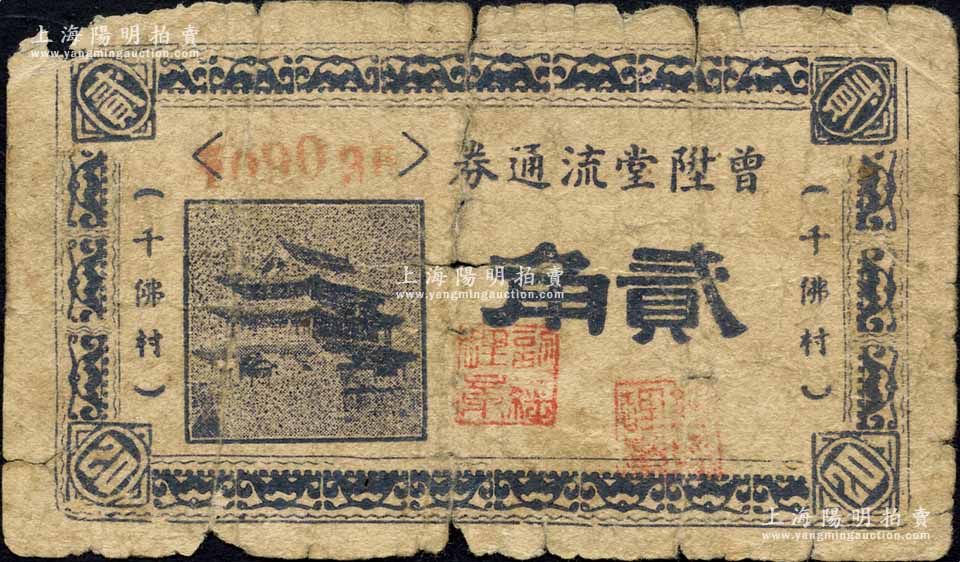 上海陽明拍賣
www.yangmingauction.com
貳
貳
曾陞堂流通券
(千佛村)
貳角
上海陽明拍賣
www.yangmingauction.com
(千佛村)
20
20
上海陽明拍賣
www.yangmingauction.com